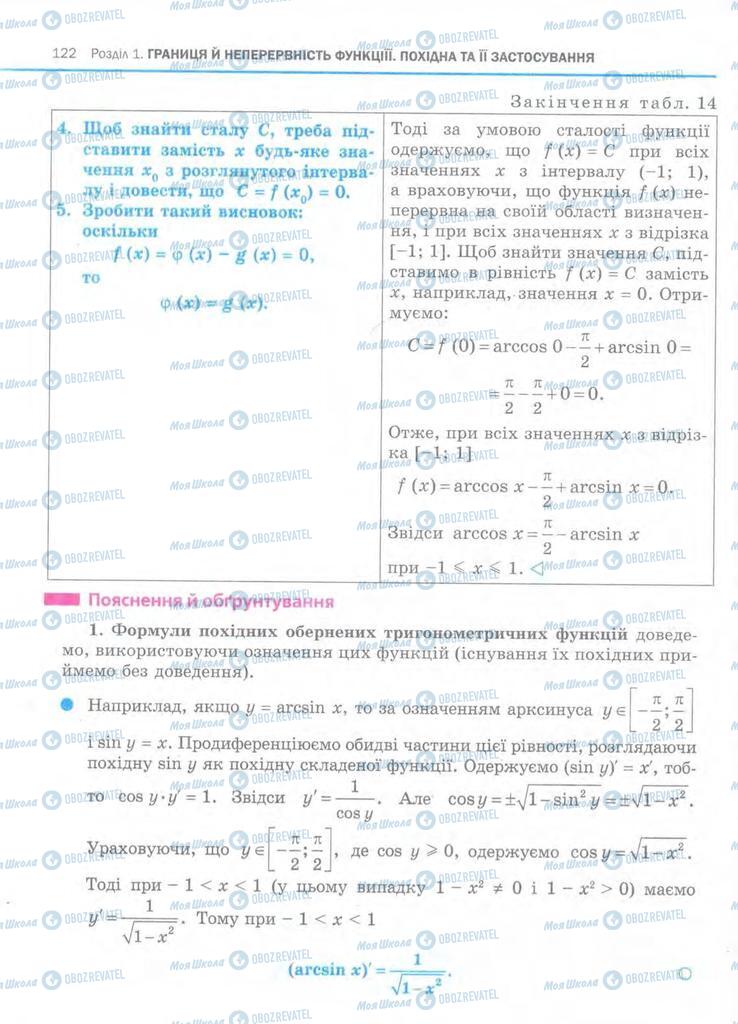 122 Розділ 1. ГРАНИЦЯ Й НЕПЕРЕРВНІСТЬ ФУНКЦІЇ. ПОХІДНА ТА ЇЇ ЗАСТОСУВАННЯ
Закінчення табл. 14
4. Щоб знайти сталу C, треба під-
ставити замість x будь-яке зна-
чення x₀ з розглянутого інтерва-
лу і довести, що C = f (x₀) = 0.
5. Зробити такий висновок:
оскільки
f (x) = φ (x) – g (x) = 0,
то
φ (x) = g (x).
Тоді за умовою сталості функції
одержуємо, що f (x) = C при всіх
значеннях x з інтервалу (–1; 1),
а враховуючи, що функція f (x) не-
перервна на своїй області визначен-
ня, і при всіх значеннях x з відрізка
[–1; 1]. Щоб знайти значення C, під-
ставимо в рівність f (x) = C замість
x, наприклад, значення x = 0. Отри-
муємо:
C = f (0) = arccos 0 – π/2 + arcsin 0 =
= π/2 – π/2 + 0 = 0.
Отже, при всіх значеннях x з відріз-
ка [–1; 1]
f (x) = arccos x – π/2 + arcsin x = 0.
Звідси arccos x = π/2 – arcsin x
при –1 ⩽ x ⩽ 1. ◁
Пояснення й обґрунтування
1. Формули похідних обернених тригонометричних функцій доведе-
мо, використовуючи означення цих функцій (існування їх похідних при-
ймемо без доведення).
Наприклад, якщо y = arcsin x, то за означенням арксинуса y ∈ [–π/2; π/2]
і sin y = x. Продиференціюємо обидві частини цієї рівності, розглядаючи
похідну sin y як похідну складеної функції. Одержуємо (sin y)′ = x′, тоб-
то cos y · y′ = 1. Звідси y′ = 1/cos y. Але cos y = ±√(1 – sin² y) = ±√(1 – x²).
Ураховуючи, що y ∈ [–π/2; π/2], де cos y ⩾ 0, одержуємо cos y = √(1 – x²).
Тоді при – 1 < x < 1 (у цьому випадку 1 – x² ≠ 0 і 1 – x² > 0) маємо
y′ = 1/√(1 – x²). Тому при – 1 < x < 1
(arcsin x)′ = 1/√(1 – x²).